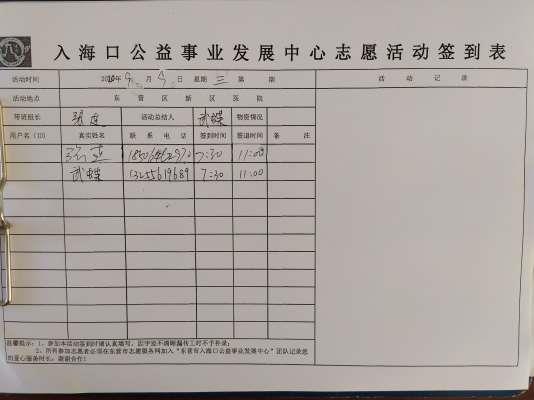 入海口公益事业发展中心志愿活动签到表
活动时间 2020年 9 月 9 日 星期 三 第 期 活动记录
活动地点 东营区新区医院
带班组长 活动总结人 武蝶 物资情况
用户名(ID) 真实姓名 联系电话 签到时间 签退时间 备注
7:30 11:00
武蝶 13255619689 7:30 11:00
温馨提示:1、参加本活动签到时请认真填写,因字迹不清晰漏传工时不予补录;
2、所有参加志愿者必须在东营市志愿服务网加入“东营市入海口公益事业发展中心”团队记录您
的爱心服务时长,谢谢合作!